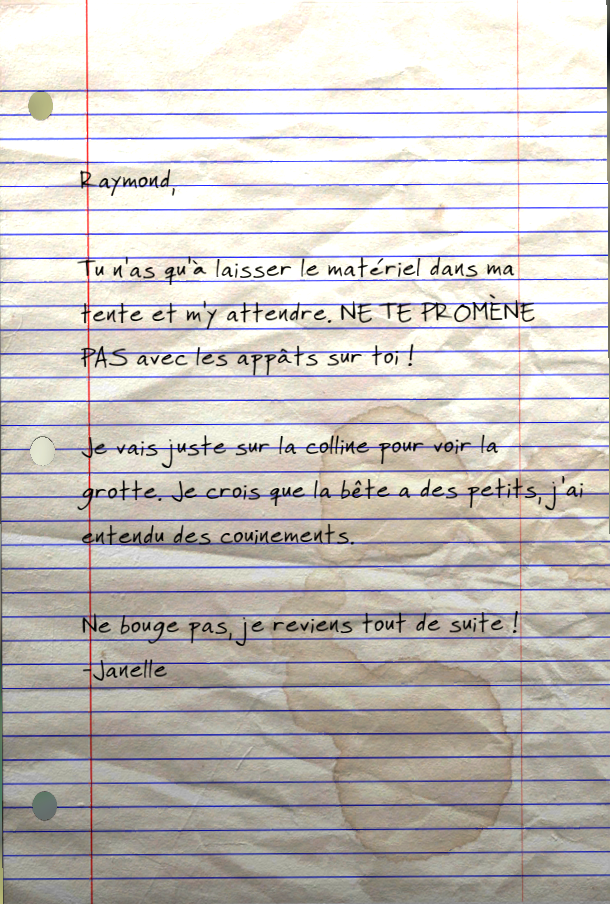 Raymond,
Tu n'as qu'à laisser le matériel dans ma
tente et m'y attendre. NE TE PROMÈNE
PAS avec les appâts sur toi !
Je vais juste sur la colline pour voir la
grotte. Je crois que la bête a des petits, j'ai
entendu des couinements.
Ne bouge pas, je reviens tout de suite !
-Janelle